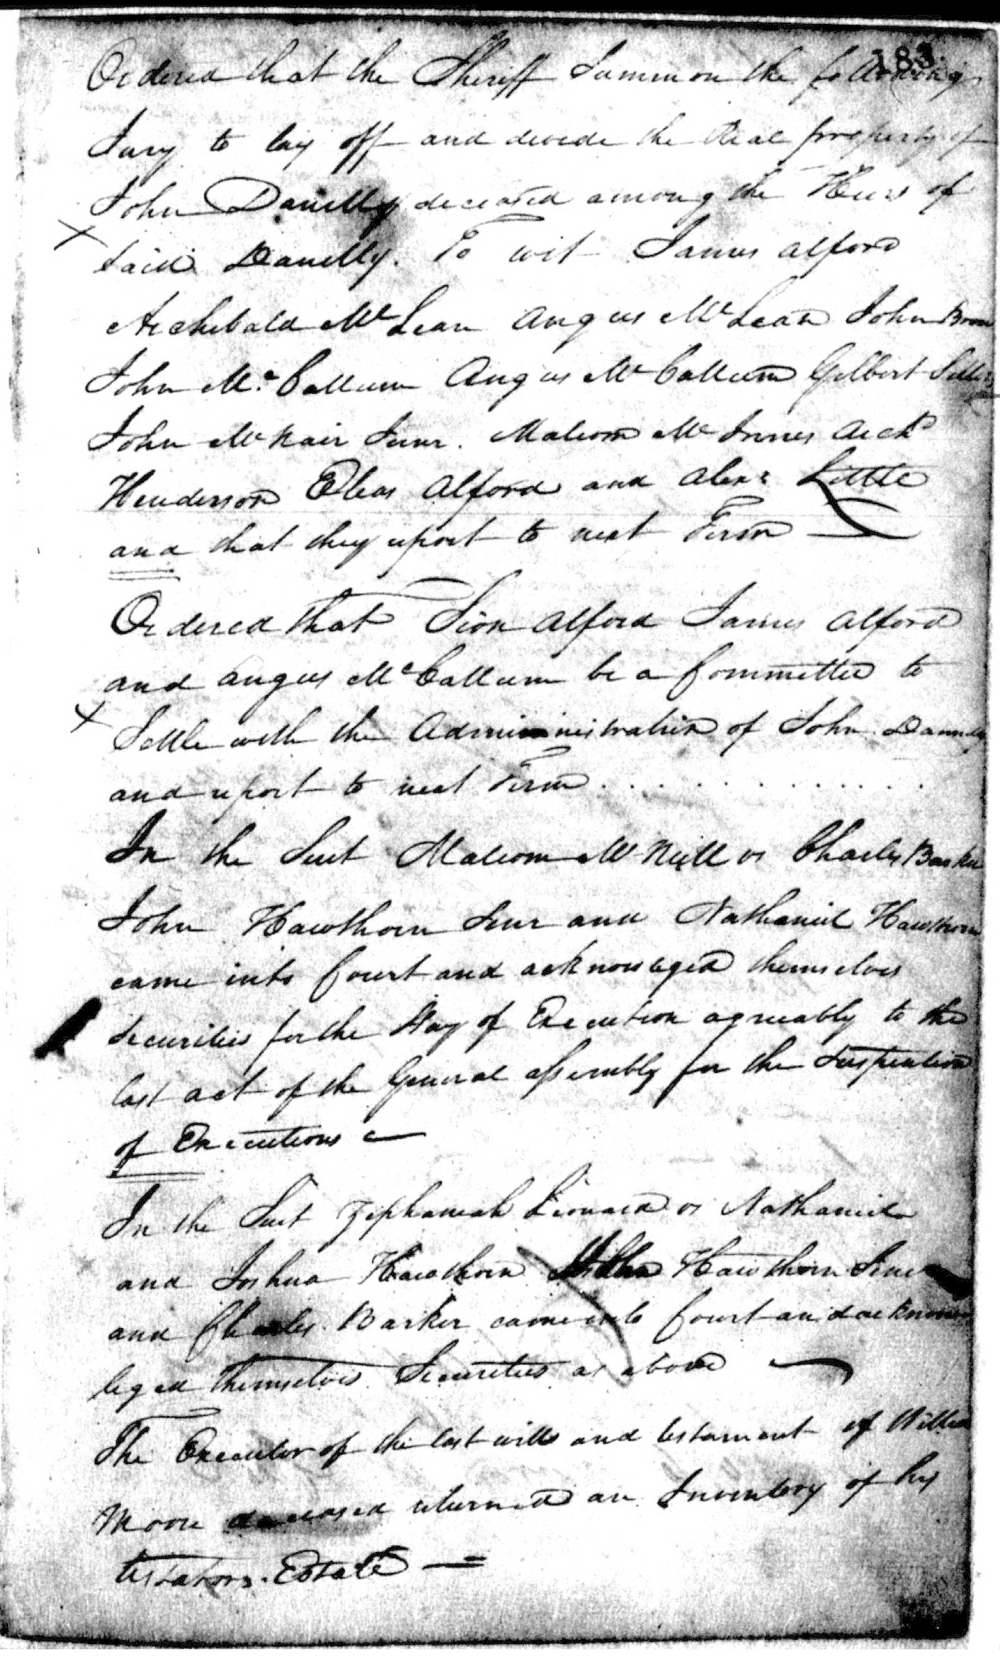 183
Ordered that the Sheriff Summon the following
Jury to lay off and devide the Real property of
John Danilly deceased among the Heirs of
Said Danelly. To wit James Alford
Archebald Mc Lean Angus Mc Lean John
John Mc Callum Angus Mc Callum Gilbert
John Mc Nair Senr. Malcom Mc Innes Archd
Henderson Elias Alford and Alexr Little
and that they report to next Term
Ordered that Sion Alford James Alford
and Angus Mc Callum be a Committee to
X Settle with the Administration of John
and report to next Term . . . . . . . . . . . .
In the Suit Malcom Mc Neill vs Charles Barker
John Hawthorn Senr and Nathaniel Hawthorn
came into Court and acknowleged themselves
Securities for the Stay of Execution agreeably to the
last act of the General assembly for the Suspention
of Executions
In the Suit Zephaniah Leonard vs Nathaniel
and Joshua Hawthorn Hawthorn Senr
and Charles Barker came into Court and acknow
leged themselves Securities as above
The Executor of the last will and testament of
Moore deceased returned an Inventory of his
testators Estate =